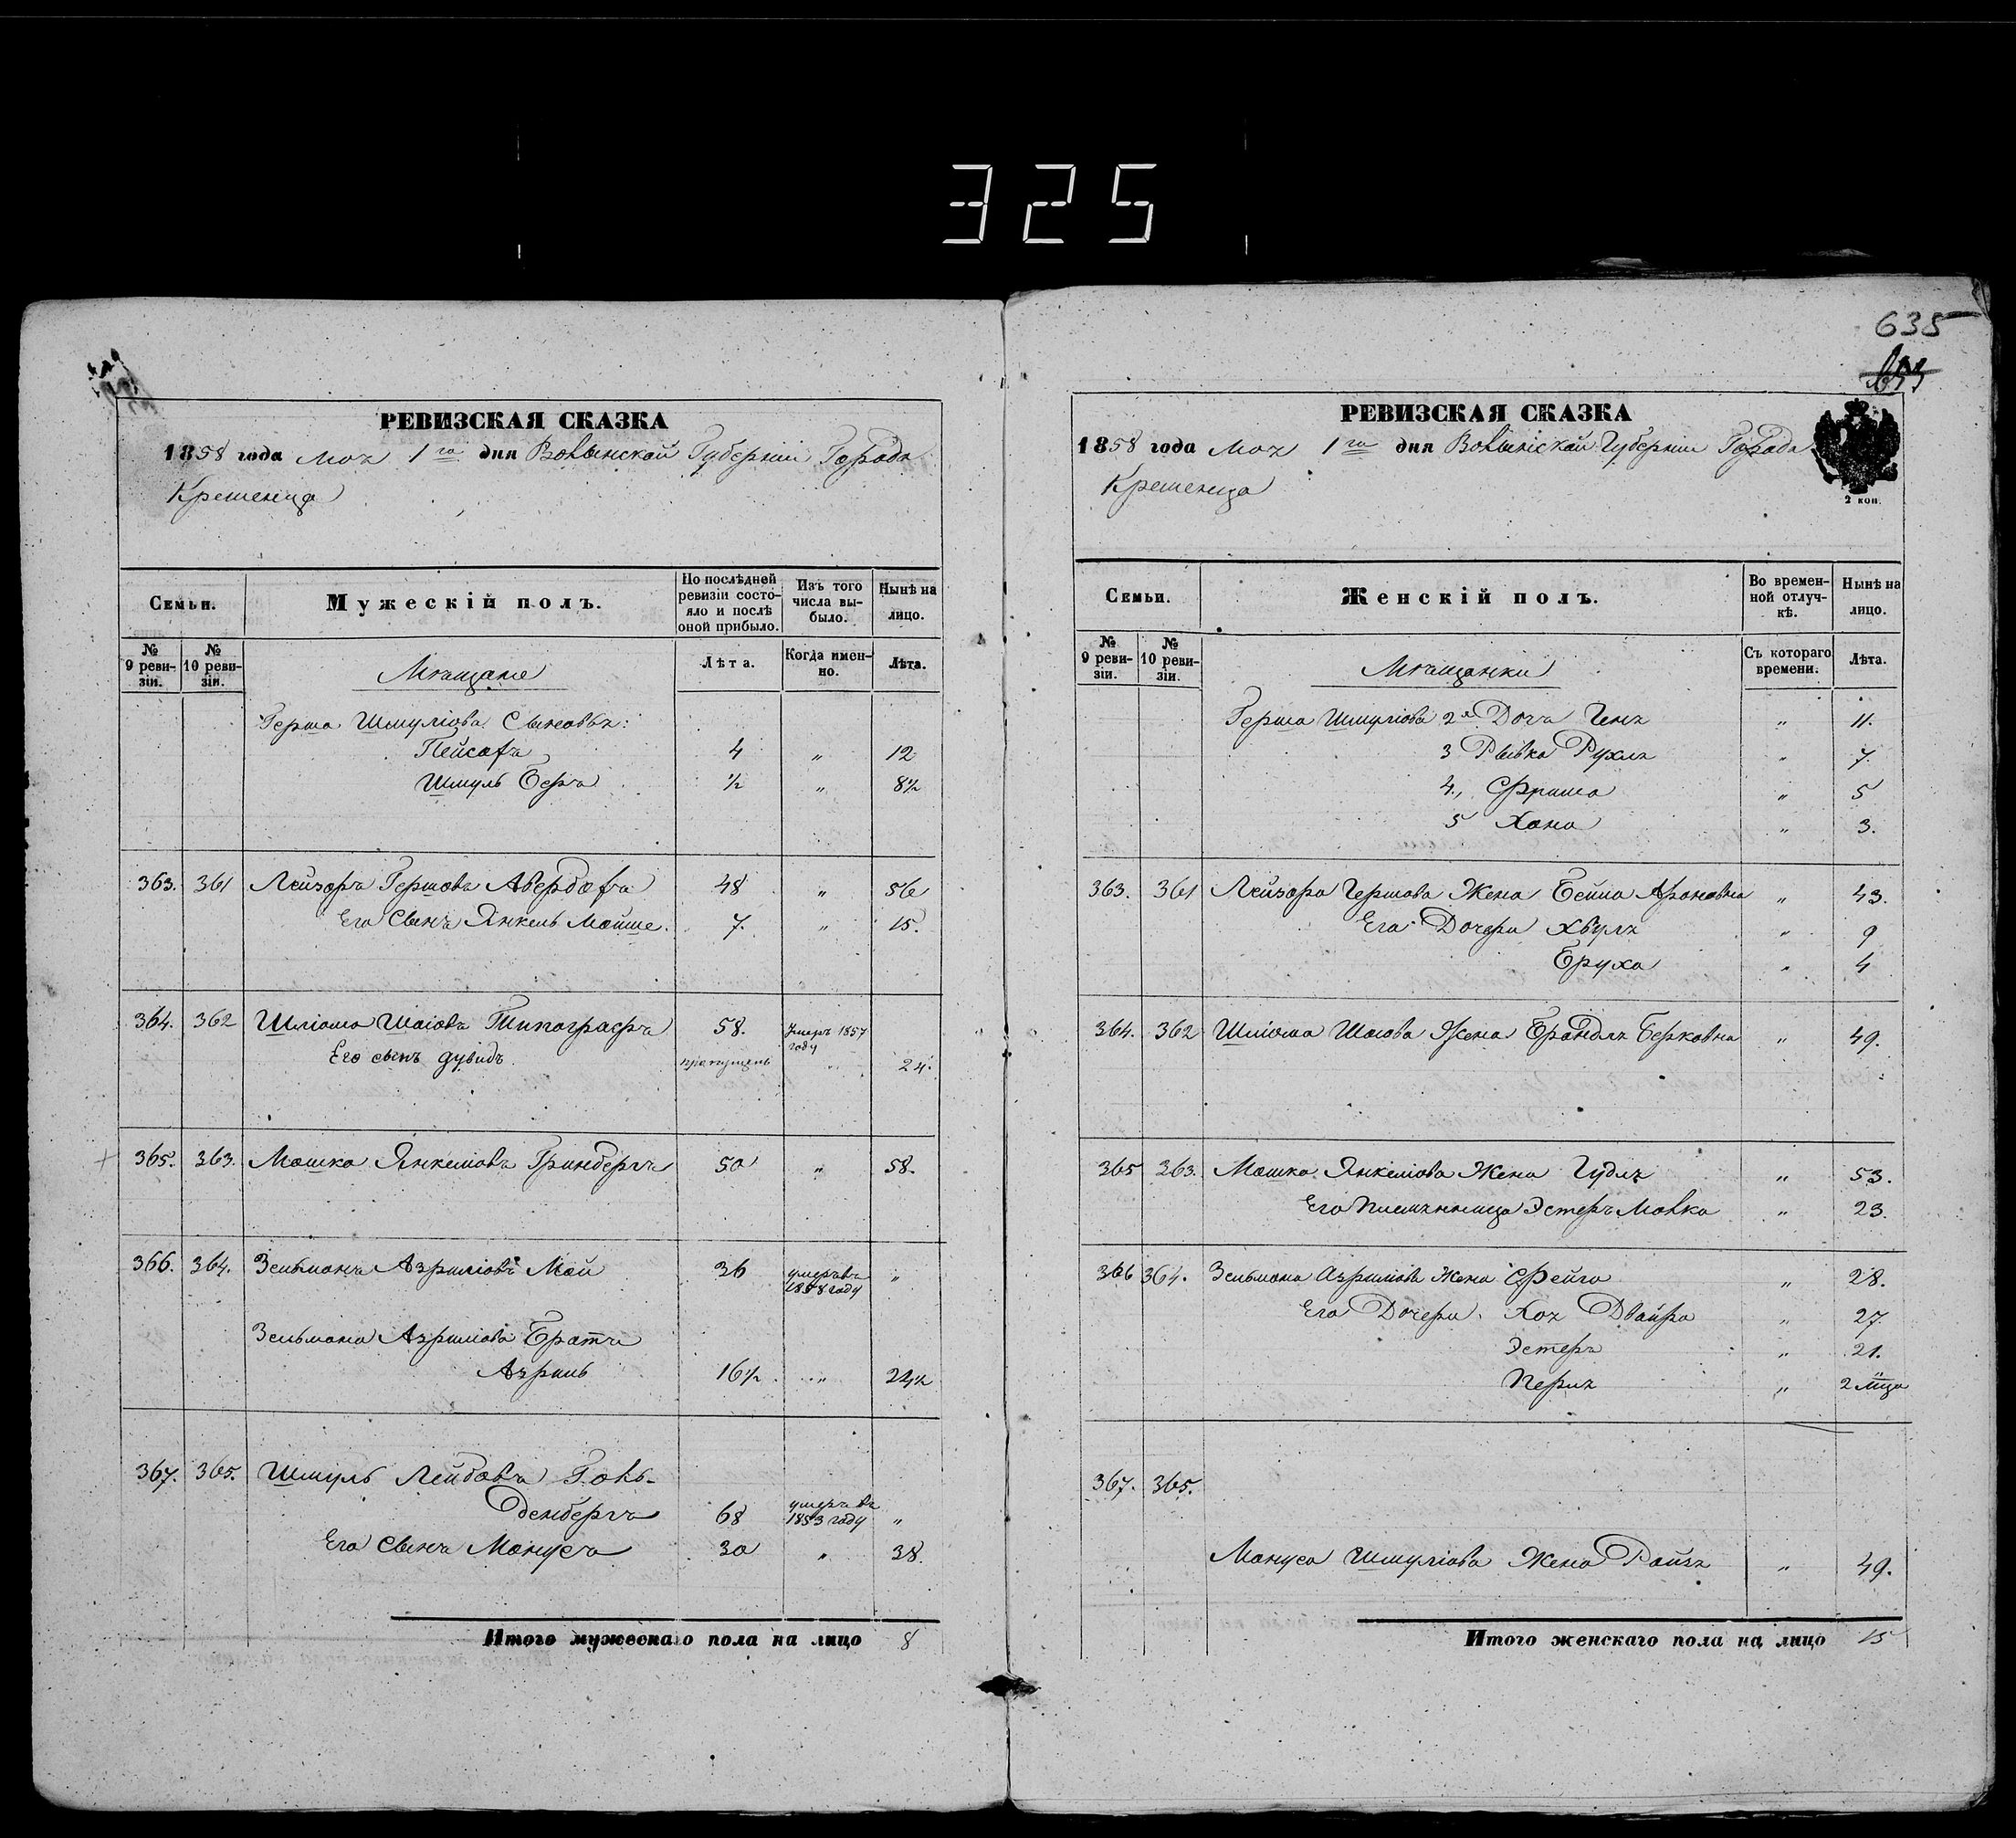 325
635
РЕВИЗСКАЯ СКАЗКА
1858 года Моя 1го дня Волынской Губерніи Города
Кременца
Семьи.
Мужескій полъ.
По послѣдней ревизіи состояло и послѣ оной прибыло.
Изъ того числа выбыло.
Нынѣ на лицо.
№ 9 ревизіи.
№ 10 ревизіи.
Мѣщане
Лѣта.
Когда именно.
Лѣта.
Герша Шмуліова Сыновья:
Пейсахъ 4 " 12
Шмуль Беръ ½ " 8½
363. 361 Лейзоръ Гершовъ Авербахъ 48 " 56
Его Сынъ Янкель Мойше. 7. " 15.
364. 362 Шліома Шаіовъ Типографъ 58. Умеръ 1857 году
Его сынъ Дувидъ пропущенъ " 24.
365. 363. Мошко Янкеліовъ Гринбергъ 50 " 58.
366. 364. Зельманъ Азриліовъ Май 36 умеръ въ 1858 году "
Зельмана Азриліова Братъ
Азриль 16½ " 24½
367. 365. Шмуль Лейбовъ Голь-
денбергъ 68 умеръ въ 1853 году "
Его Сынъ Манусъ 30 " 38.
Итого мужескаго пола на лицо 8
РЕВИЗСКАЯ СКАЗКА
1858 года Моя 1го дня Волынской Губерніи Города
Кременца
2 коп.
Семьи.
Женскій полъ.
Во временной отлучкѣ.
Нынѣ на лицо.
№ 9 ревизіи.
№ 10 ревизіи.
Мѣщанки
Съ котораго времени.
Лѣта.
Герша Шмуліова 2я Дочь Геня " 11.
3 Рывка Рухля " 7.
4., Фрима " 5
5 Хана " 3.
363. 361 Лейзора Гершова Жена Бейла Ароновна " 43.
Его Дочери Хвуля " 9
Бруха " 4
364. 362 Шліома Шаіова Жена Брандля Берковна " 49.
365 363. Мошка Янкеліова Жена Гудля " 53.
Его Племянница Эстеръ Малка " 23.
366 364. Зельмана Азриліова Жена Фейга " 28.
Его Дочери. Хая Двойра " 27.
Эстеръ " 21.
Перля " 2 мца
367. 365.
Мануса Шмуліова Жена Ройзя " 49.
Итого женскаго пола на лицо 15